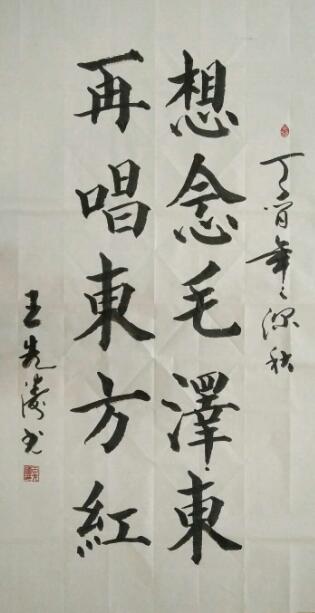 丁酉年之深秋
想念毛澤東
再唱東方紅
王先涛书